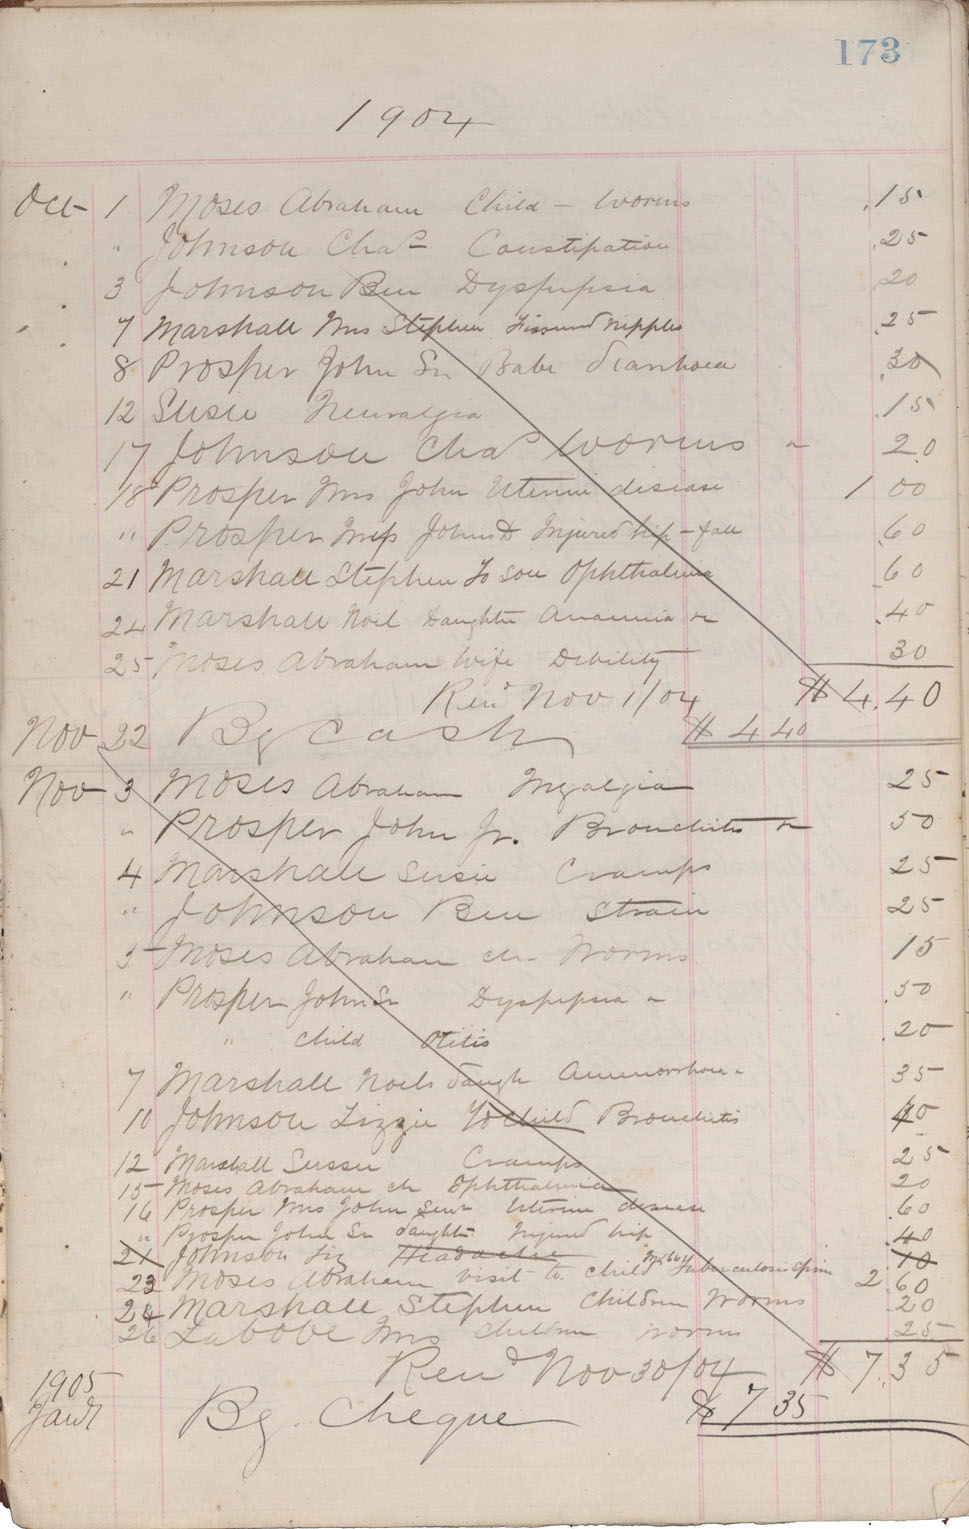 173
1904
Oct 1 Moses Abraham Child - Worms .15
" Johnson Chas Constipation .25
3 Johnson Ben Dyspepsia .20
7 Marshall Mrs Stephen Fissured nipples .25
8 Prosper John Sr Babe diarrhoea .30
12 Susie Neuralgia .15
17 Johnson Chas Worms 20
18 Prosper Mrs John Uterine disease 1 00
" Prosper John Injured hip - fall .60
21 Marshall Stephen To son Ophthalmia .60
24 Marshall Noel Daughter Anaemia .40
25 Moses Abraham Wife Debility 30
Rend Nov 1/04 $ 4.40
Nov 22 By cash $ 4 40
Nov 3 Moses Abraham Myalgia 25
" Prosper John Jr. Bronchitis 50
4 Marshall Susie Cramps 25
" Johnson Ben Strain 25
5 Moses Abraham ch Worms 15
" Prosper John Sr Dyspepsia .50
" Child Otitis 20
7 Marshall Noels daugh Amenorrhoea 35
10 Johnson Lizzie To child Bronchitis 40
12 Marshall Sussie Cramps 25
15 Moses Abraham ch Ophthalmia 20
16 Prosper Mrs John Uterine disease .60
" Prosper John Sr daughter Injured hip 40
21 Johnson Liz Headache 10
23 Moses Abraham visit to child Tuberculosis spine 2 60
24 Marshall Stephen Children Worms 20
26 Labobe Mrs Children worms 25
Rend Nov 30/04 $ 7.35
1905
Jan By Cheque $ 7 35